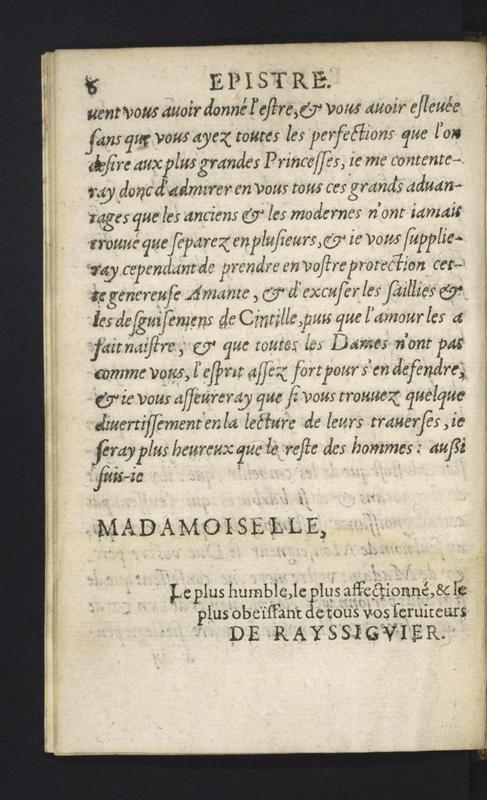 6 EPISTRE.
uent vous auoir donné l'estre, & vous auoir esleuée
sans que vous ayez toutes les perfections que l'on
desire aux plus grandes Princesses, ie me contente-
ray donc d'admirer en vous tous ces grands aduan-
tages que les anciens & les modernes n'ont iamais
trouué que separez en plusieurs, & ie vous supplie-
ray cependant de prendre en vostre protection cet-
te genereuse Amante, & d'excuser les saillies &
les desguisemens de Cintille, puis que l'amour les a
fait naistre, & que toutes les Dames n'ont pas
comme vous, l'esprit assez fort pour s'en defendre,
& ie vous asseureray que si vous trouuez quelque
diuertissement en la lecture de leurs trauerses, ie
seray plus heureux que le reste des hommes: aussi
suis-ie
MADAMOISELLE,
Le plus humble, le plus affectionné, & le
plus obeïssant de tous vos seruiteurs
DE RAYSSIGVIER.